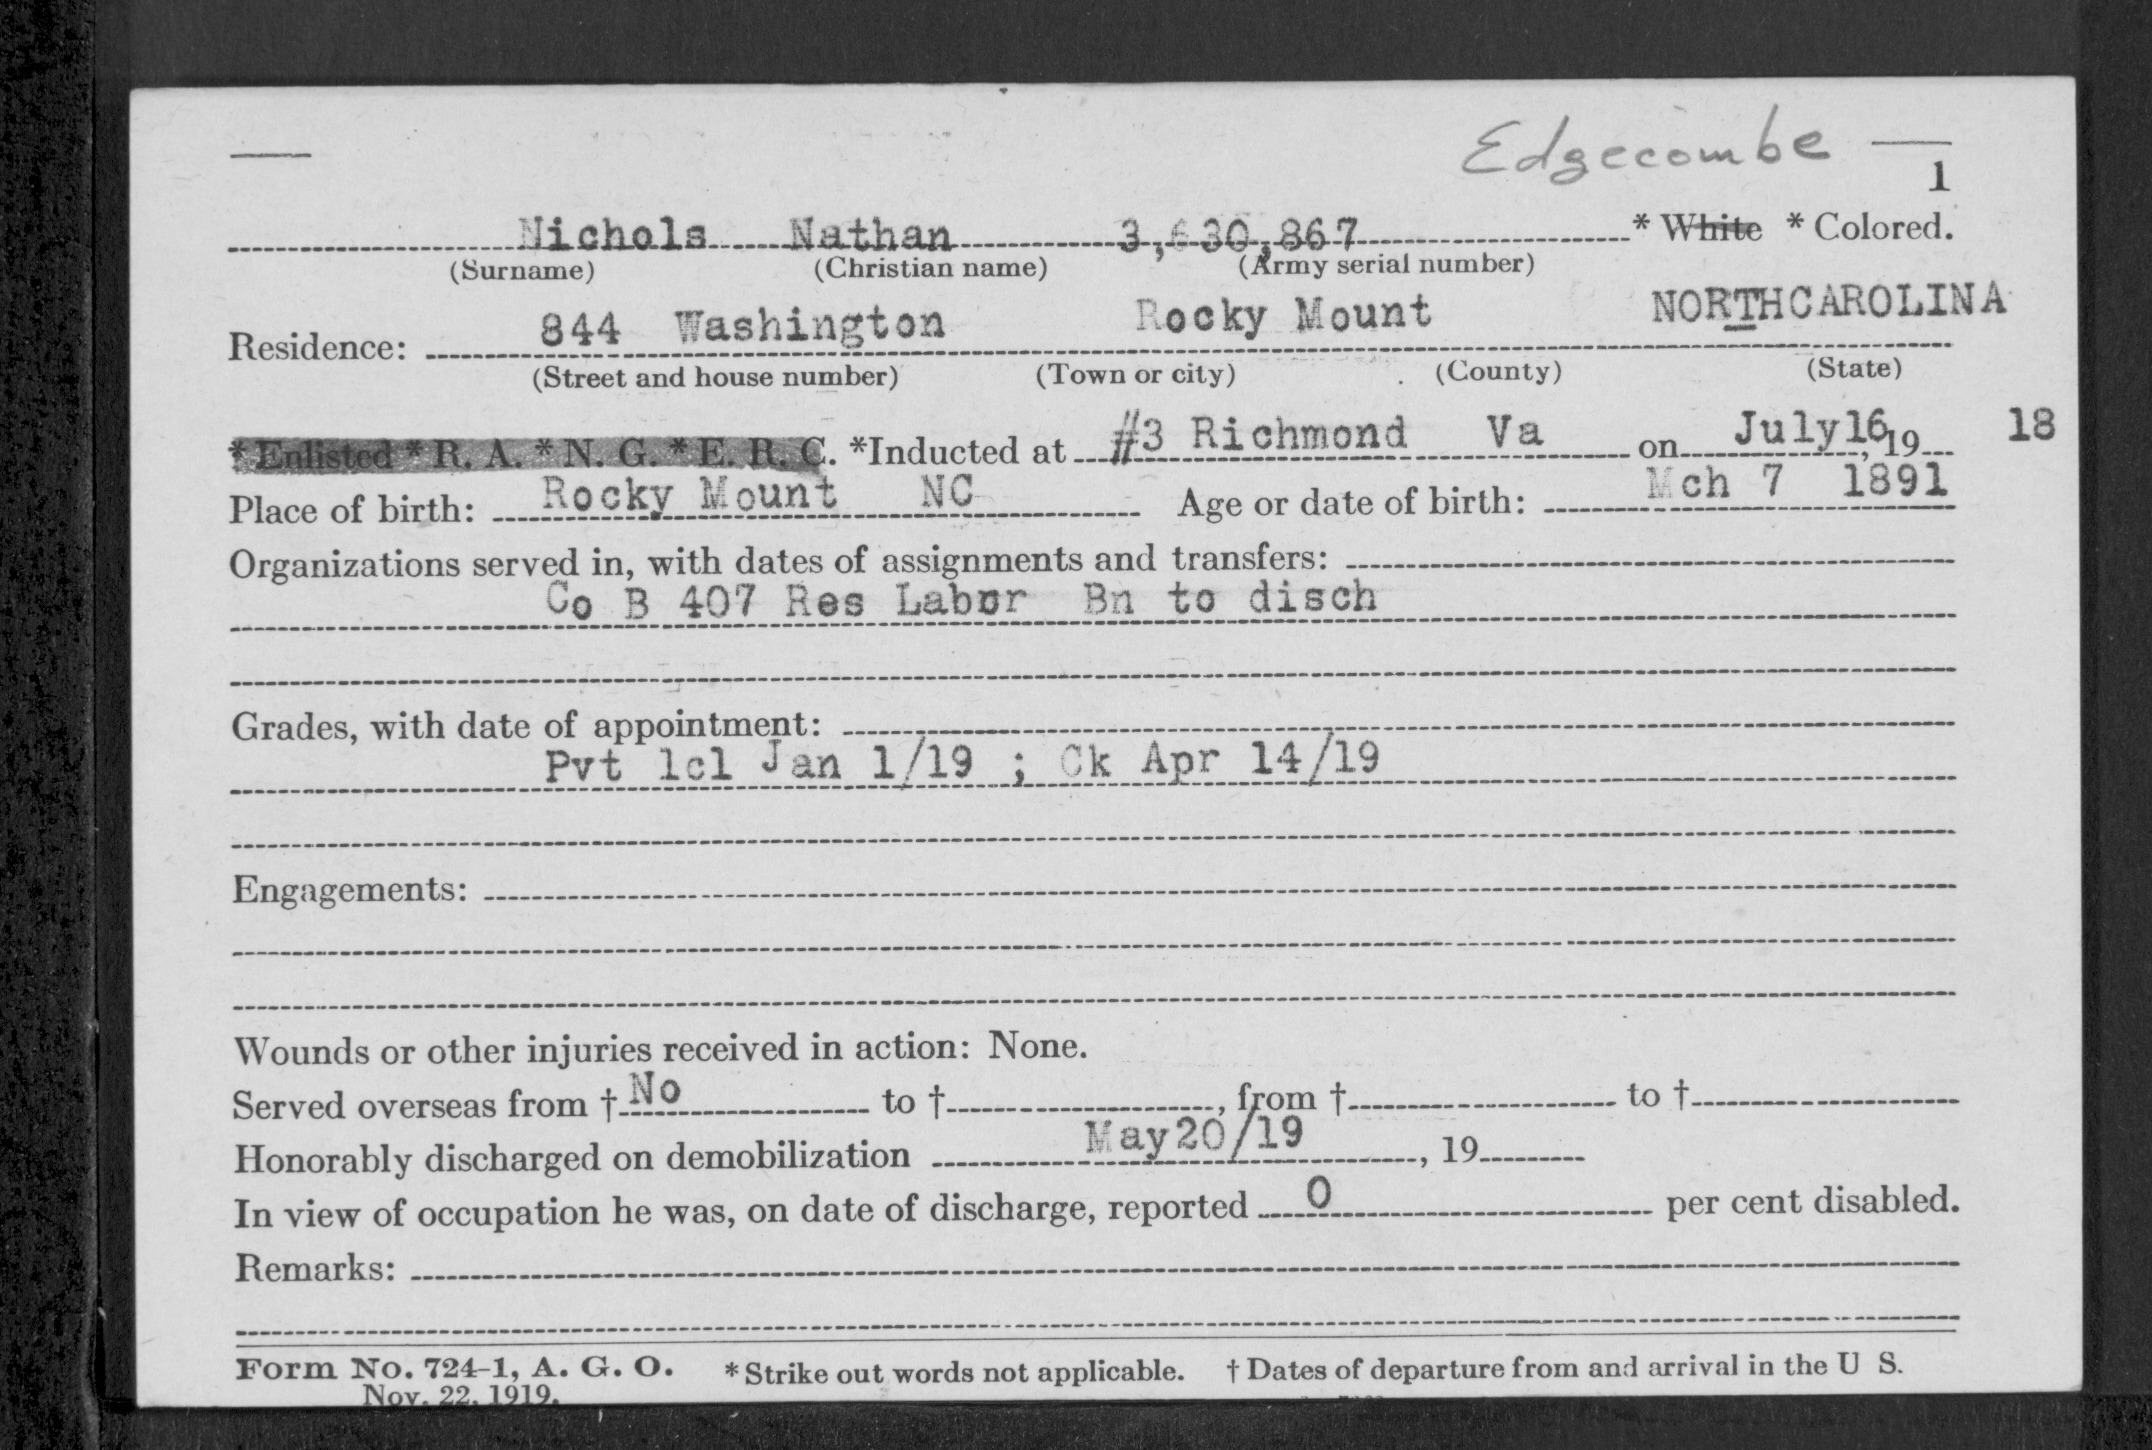 Edgecombe
1
Nichols Nathan 3,630,867 * White * Colored.
(Surname) (Christian name) (Army serial number)
Residence: 844 Washington Rocky Mount NORTHCAROLINA
(Street and house number) (Town or city) (County) (State)
* Enlisted * R. A. * N. G. * E. R. C. *Inducted at #3 Richmond Va on July16, 19 18
Place of birth: Rocky Mount NC Age or date of birth: Mch 7 1891
Organizations served in, with dates of assignments and transfers:
Co B 407 Res Labor Bn to disch
Grades, with date of appointment:
Pvt 1cl Jan 1/19 ; Ck Apr 14/19
Engagements:
Wounds or other injuries received in action: None.
Served overseas from † No to †, from † to †
Honorably discharged on demobilization May20/19, 19
In view of occupation he was, on date of discharge, reported 0 per cent disabled.
Remarks:
Form No. 724-1, A. G. O. * Strike out words not applicable. † Dates of departure from and arrival in the U S.
Nov. 22, 1919.